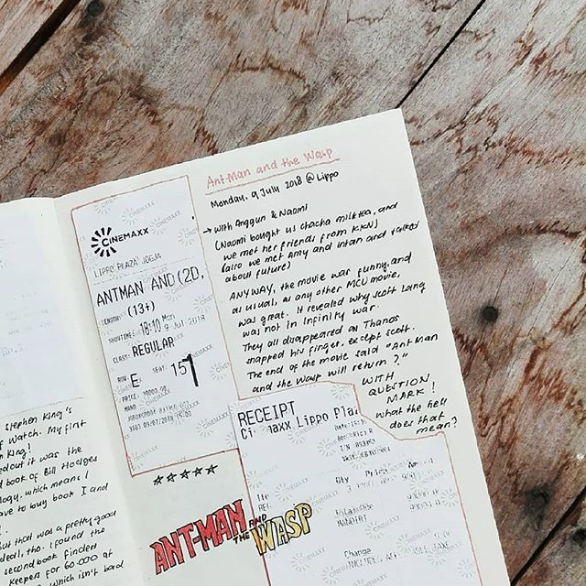 Stephen King's
f Watch. My first
n King!
d out it was the
d book of Bill Hodges
logy, which means I
ave to buy book 1 and
but that was a pretty good
deal, tho. I found the
second book Finders
Keeper for 60.000 at
which isn't bad
CINEMAXX
LIPPO PLAZA JOGJA
ANTMAN AND (2D,
(13+)
SHOWTIME: 18:10 Mon
9-Jul-2018
CLASS: REGULAR
ROW: E SEAT: 15
1
★★★★★
ANT-MAN
AND
THE WASP
Ant-Man and the Wasp
Monday, 9 July 2018 @ Lippo
→ with Anggun & Naomi
(Naomi bought us chacha milk tea, and
we met her friends from KKN)
(also we met Amy and Intan and talked
about future)
ANYWAY, the movie was funny, and
as usual, as any other MCU movie,
was great. It revealed why Scott Lang
was not in Infinity War.
They all disappeared as Thanos
snapped his finger, except Scott.
The end of the movie said "Ant Man
and the Wasp will return?"
WITH
QUESTION
MARK!
What the hell
does that
mean?
RECEIPT
Cinemaxx Lippo Pla
Change